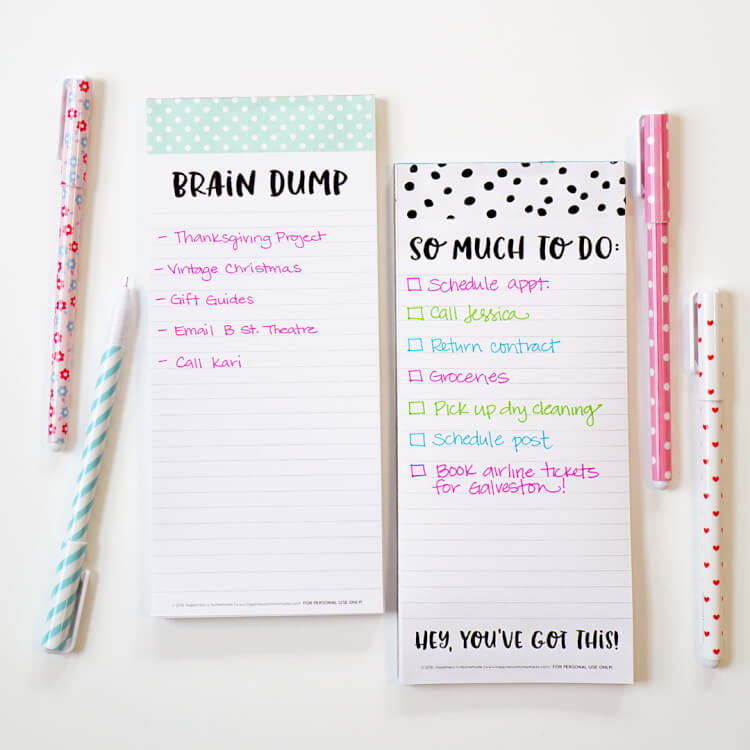 BRAIN DUMP
- Thanksgiving Project
- Vintage Christmas
- Gift Guides
- Email B St. Theatre
- Call Kari
FOR PERSONAL USE ONLY!
SO MUCH TO DO:
Schedule appt.
Call Jessica
Return contract
Groceries
Pick up dry cleaning
Schedule post
Book airline tickets
for Galveston!
HEY, YOU'VE GOT THIS!
FOR PERSONAL USE ONLY!